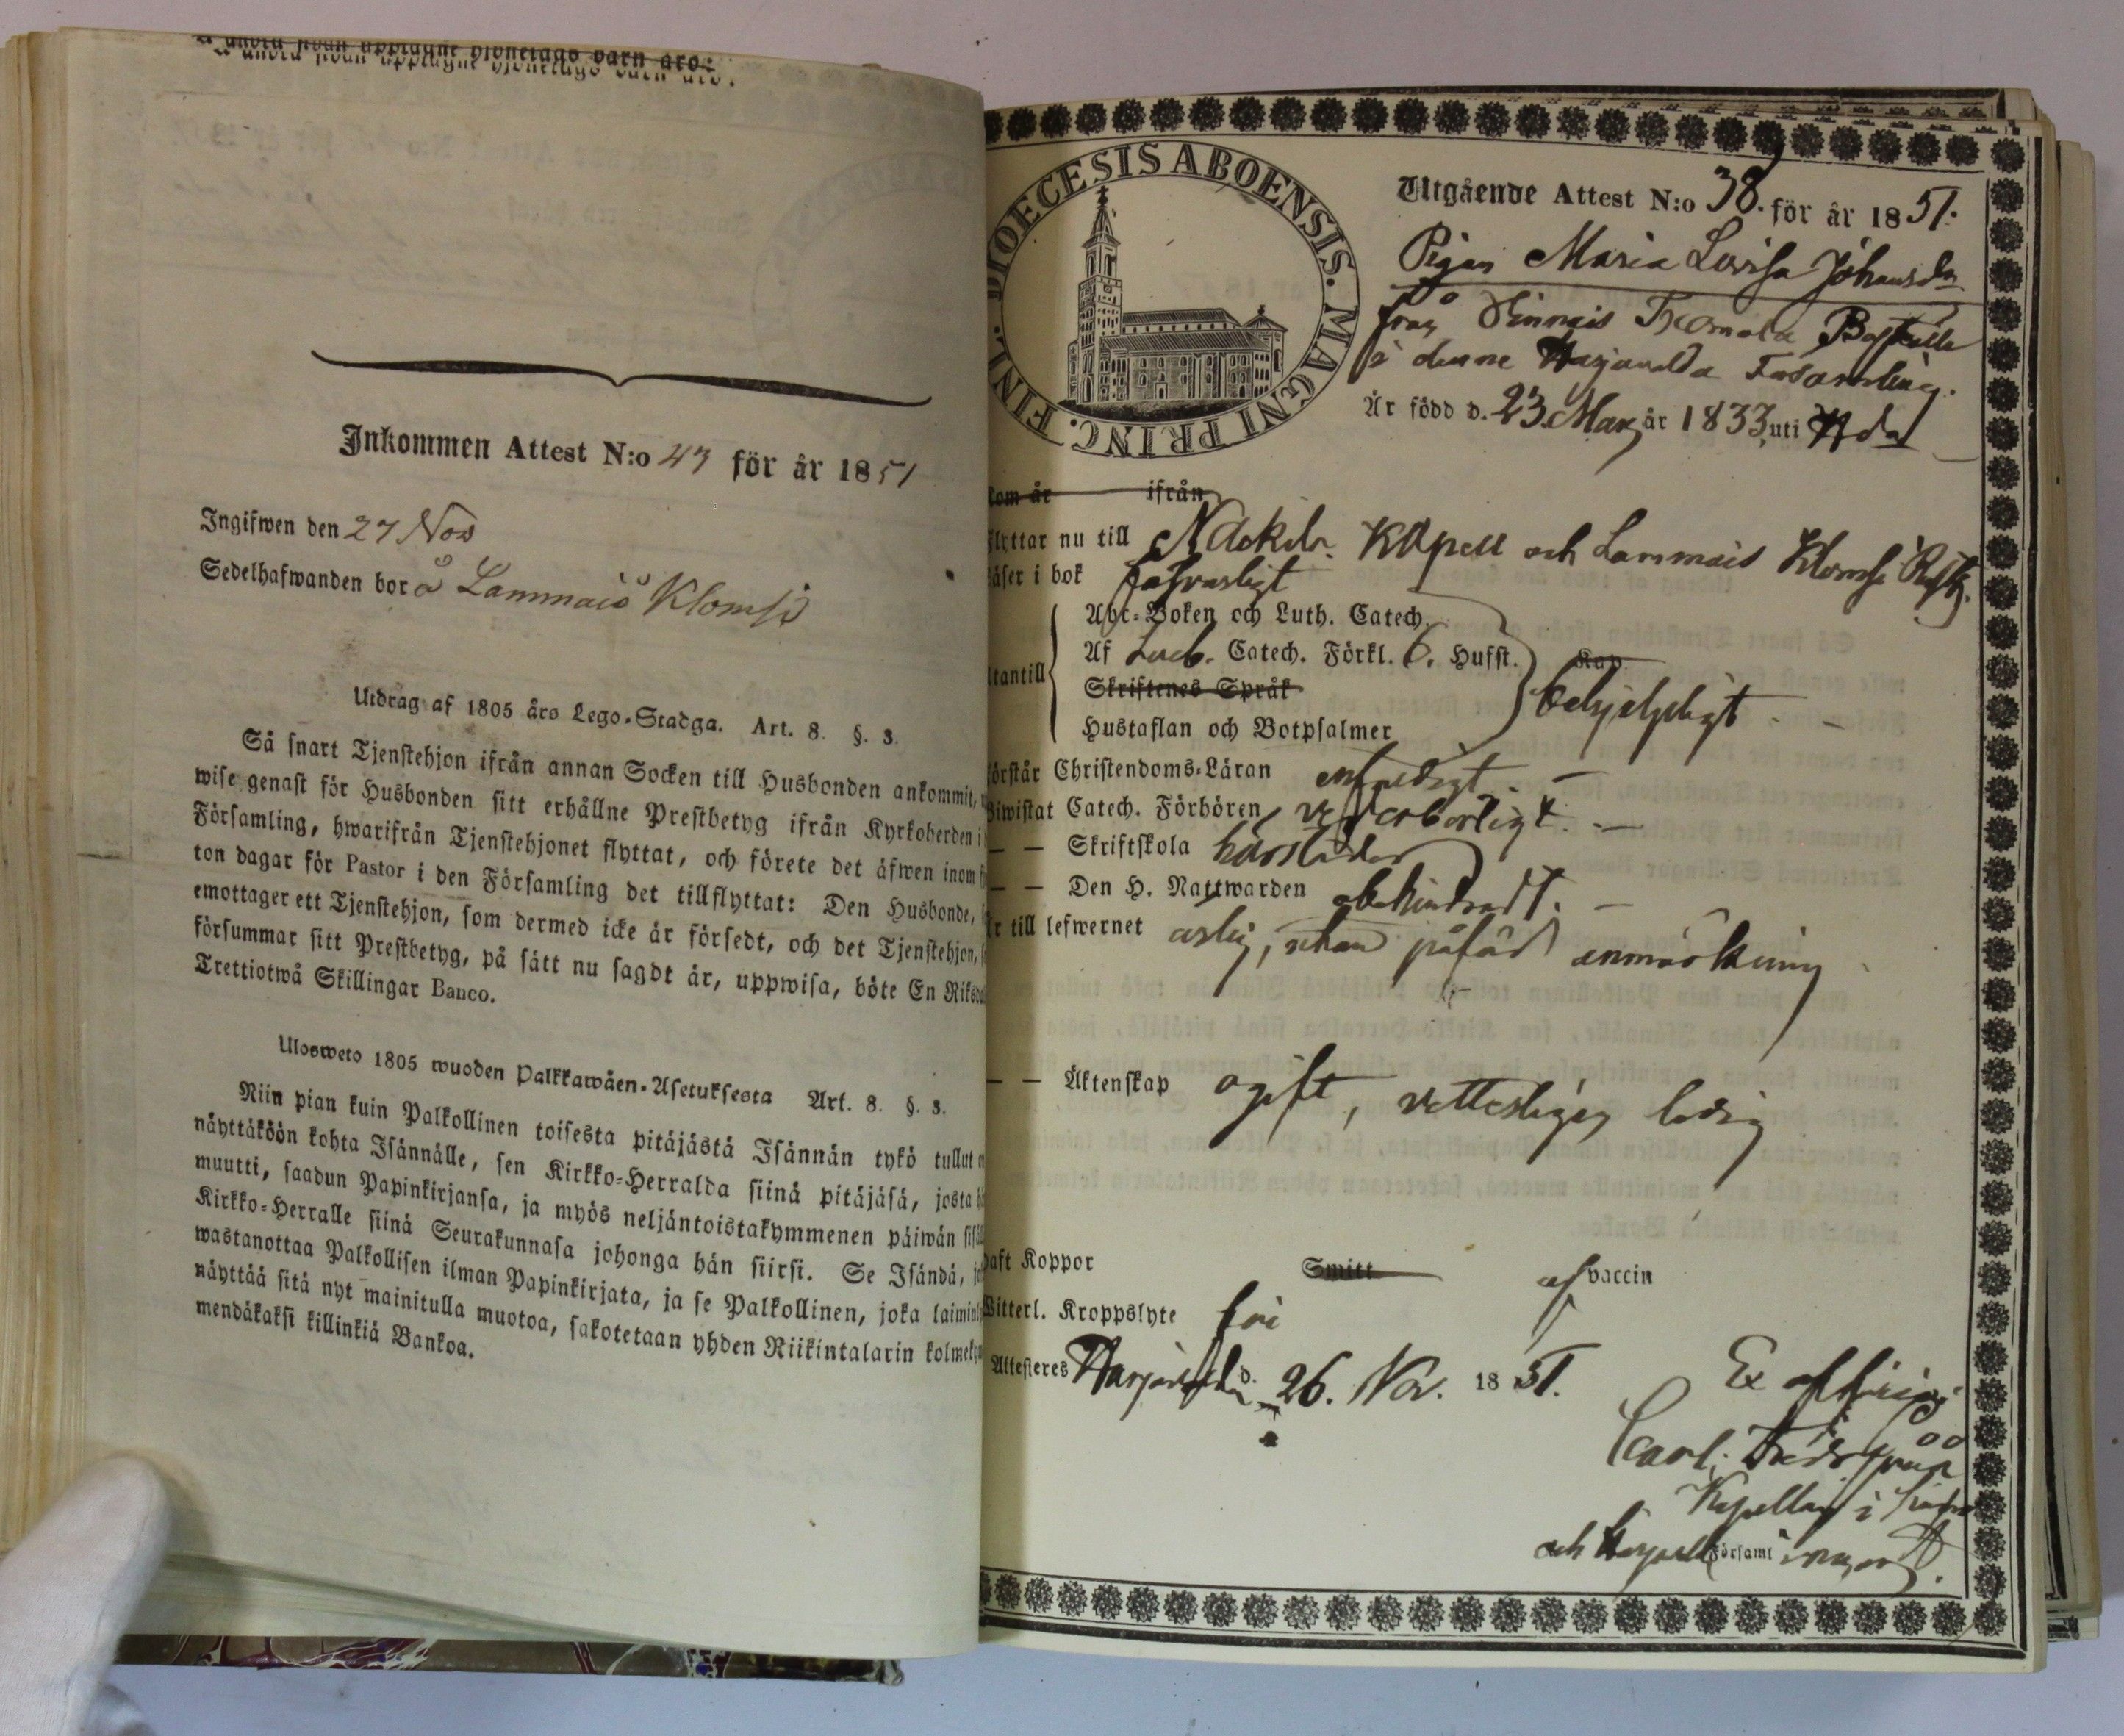 a andra sidan upptagne hjonelags barn äro:
Inkommen Attest N:o 43 för år 1851
Ingifwen den 27 Nov
Sedelhafwanden bor å Lammais Klomsi
Utdrag af 1805 års Lego-Stadga. Art. 8. §. 3.
Så snart Tjenstehjon ifrån annan Socken till Husbonden ankommit,
wise genast för Husbonden sitt erhållne Prestbetyg ifrån Kyrkoherden i
Församling, hwarifrån Tjenstehjonet flyttat, och förete det äfwen inom
ton dagar för Pastor i den Församling det tillflyttat: Den Husbonde,
emottager ett Tjenstehjon, som dermed icke är försedt, och det Tjenstehjon,
försummar sitt Prestbetyg, på sätt nu sagdt är, uppwisa, böte En Riksdal
Trettiotwå Skillingar Banco.
Ulosweto 1805 wuoden Palkkawäen-Asetuksesta Art. 8. §. 3.
Niin pian kuin Palkollinen toisesta pitäjästä Isännän tykö tullut
näyttäköön kohta Isännälle, sen Kirkko-Herralda siinä pitäjäsä, josta
muutti, saadun Papinkirjansa, ja myös neljäntoistakymmenen päiwän sisäl
Kirkko-Herralle siinä Seurakunnasa johonga hän siirsi. Se Isändä,
wastanottaa Palkollisen ilman Papinkirjata, ja se Palkollinen, joka laimin
näyttää sitä nyt mainitulla muotoa, sakotetaan yhden Riikintalarin kolmeky
mendäkaksi killinkiä Bankoa.
DIOECESIS ABOENSIS. MAGNI PRINC. FINL.
Utgående Attest N:o 38. för år 1851.
Pigan Maria Lovisa Johansdr
från Sinnais Txomola Boställe
i denne Harjavalda Församling.
Är född d. 23. Mars år 1833, uti Hda
kom år ifrån
flyttar nu till Nackila Kapell och Lammais Klomsi Rusth.
läser i bok försvarligt
Abc-Boken och Luth. Catech.
Af Sveb. Catech. Förkl. 6. Hufst. Kap
utantill
Skriftenes Språk behjelpligt
Hustaflan och Botpsalmer
förstår Christendoms-Läran enfaldigt
Biwistat Catech. Förhören vederbörligt.
— — Skriftskola härstädes
— — Den H. Nattwarden obehindradt.
Är till lefwernet ärlig, utan påförd anmärkning
— — Äktenskap ogift, vetterligen ledig
haft Koppor Smitt af vaccin
Witterl. Kroppslyte fri
Attesteres Harjavalda d. 26. Nov. 1851.
Ex officio
Carl Fredr
Kapellan i
och Harjavalda Församl